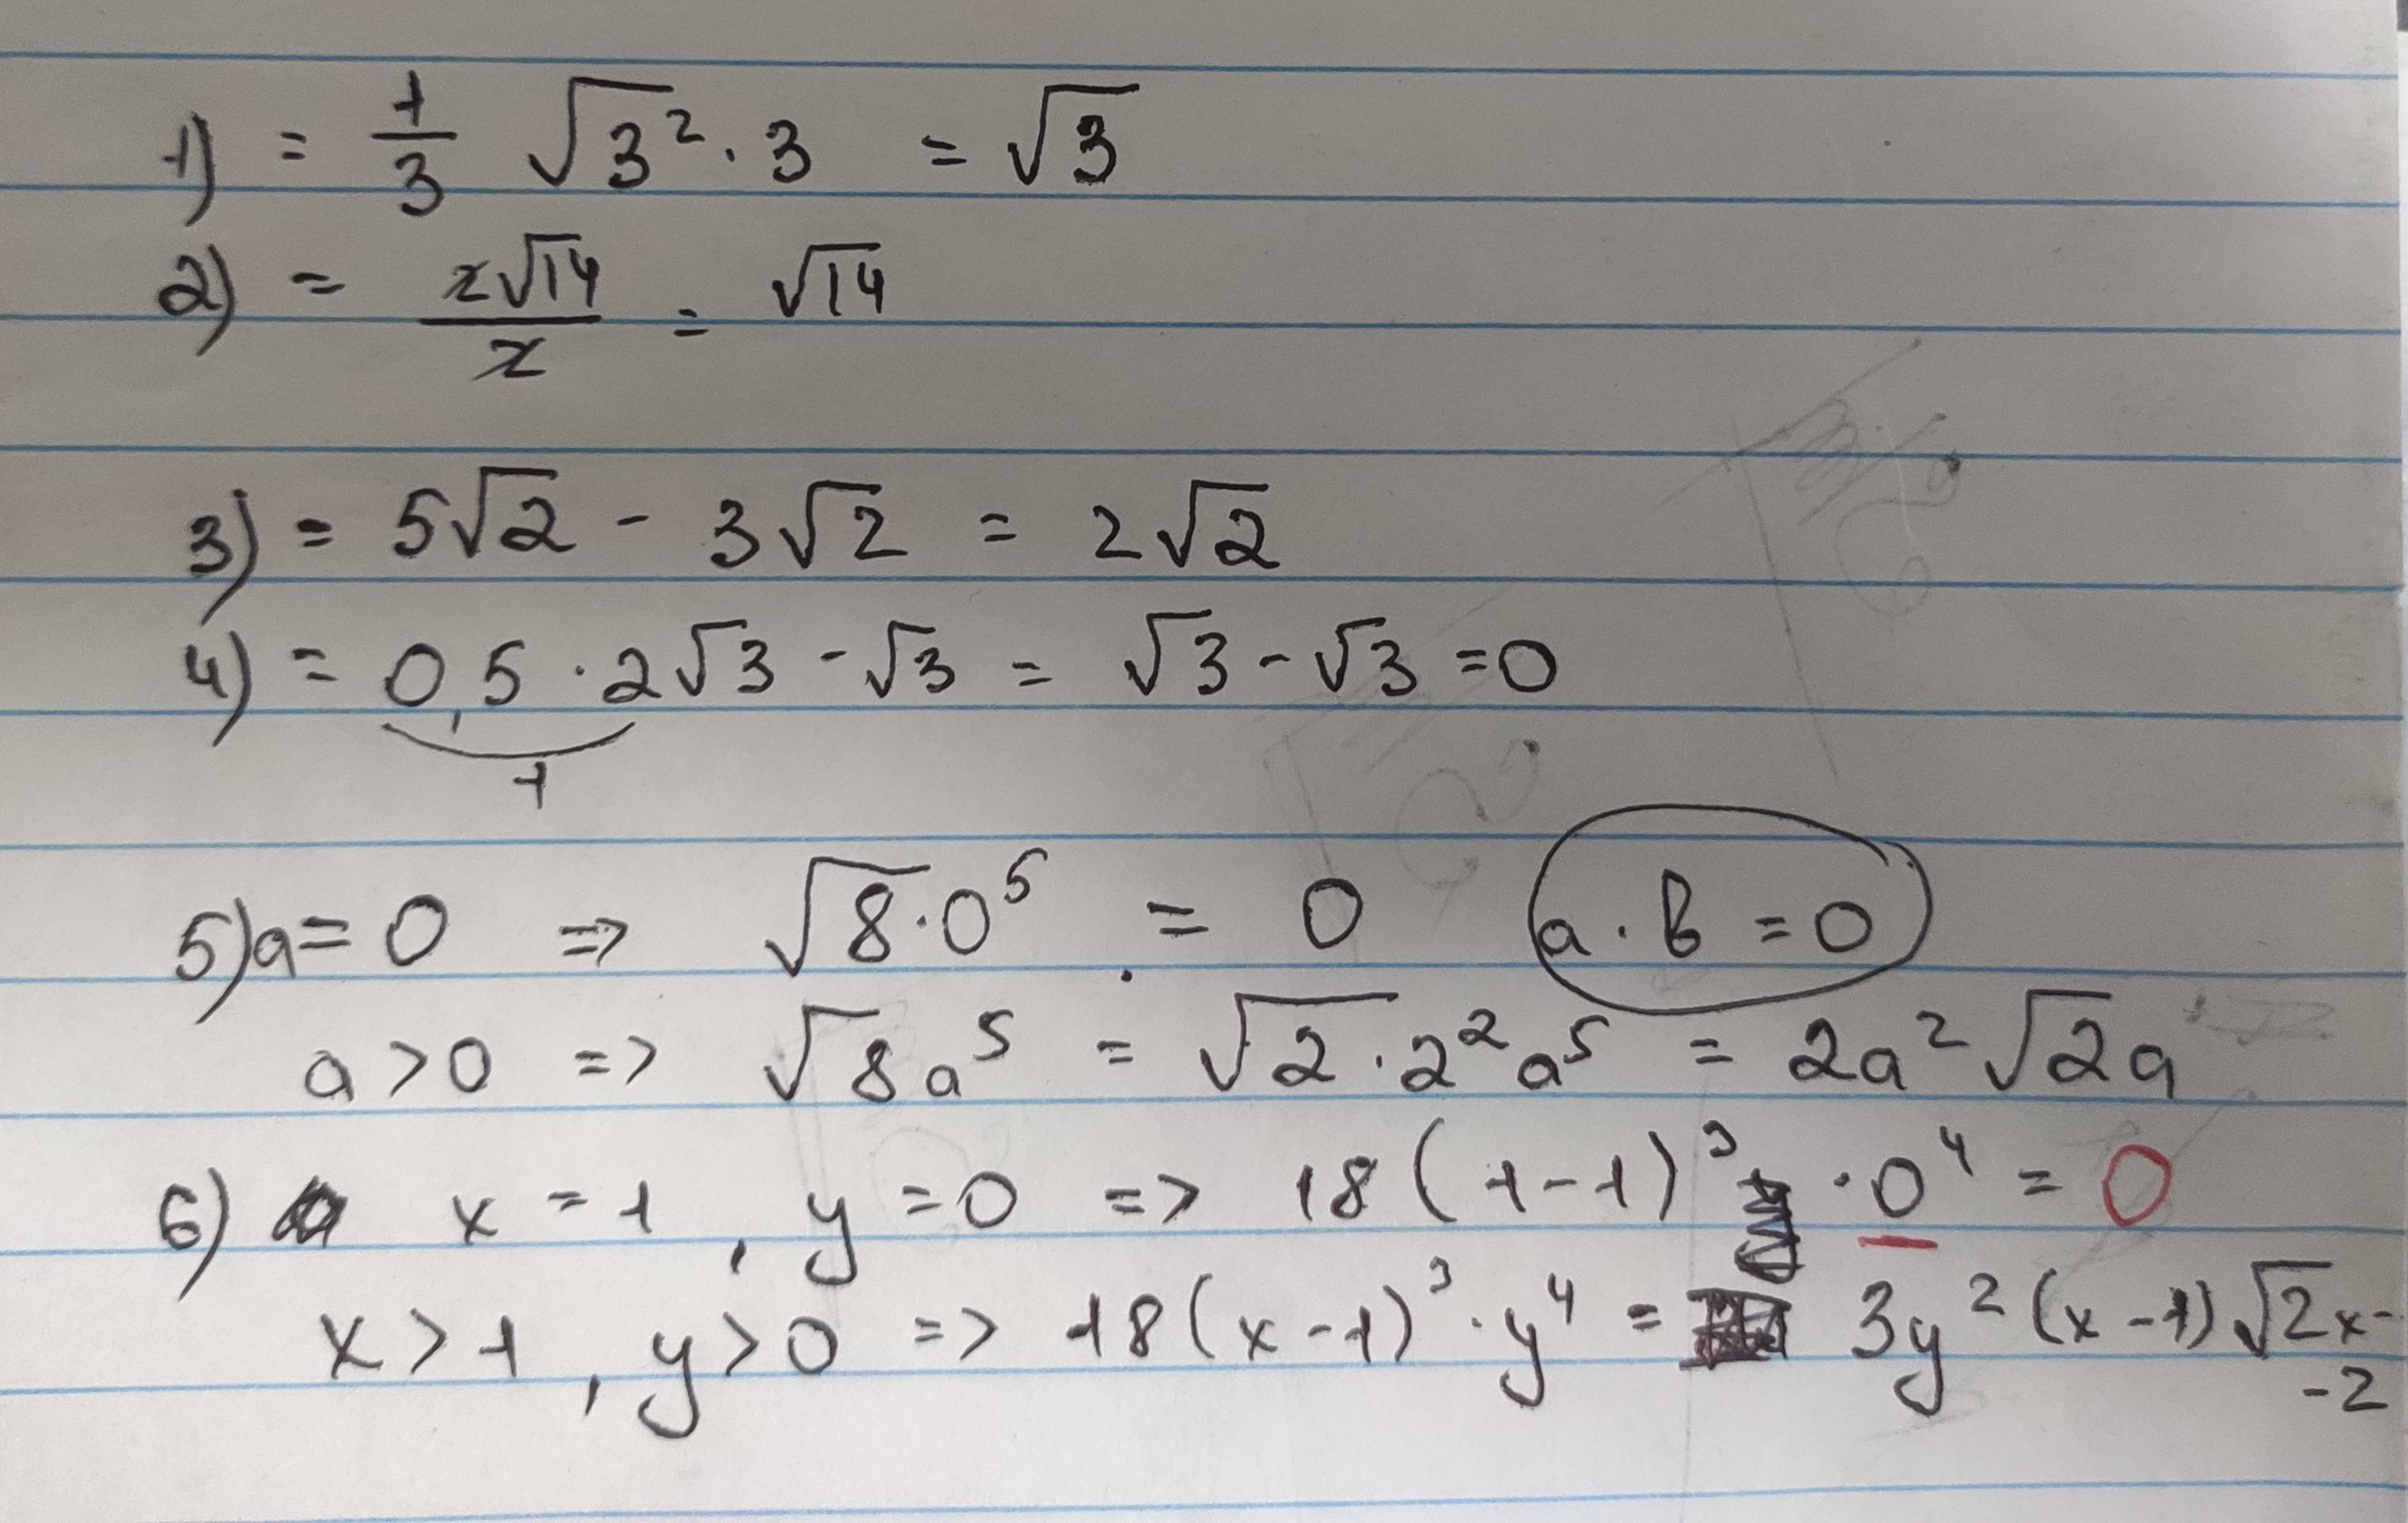 1) = 1/3 √3² · 3 = √3
2) = 2√14/2 = √14
3) = 5√2 - 3√2 = 2√2
4) = 0,5 · 2√3 - √3 = √3 - √3 = 0
1
5) a = 0 => √8 · 0⁵ = 0 a · b = 0
a > 0 => √8a⁵ = √2 · 2²a⁵ = 2a²√2a
6) x = 1, y = 0 => 18(1-1)³ · 0⁴ = 0
x > 1, y > 0 => 18(x-1)³ · y⁴ = 3y²(x-1)√2x-
-2